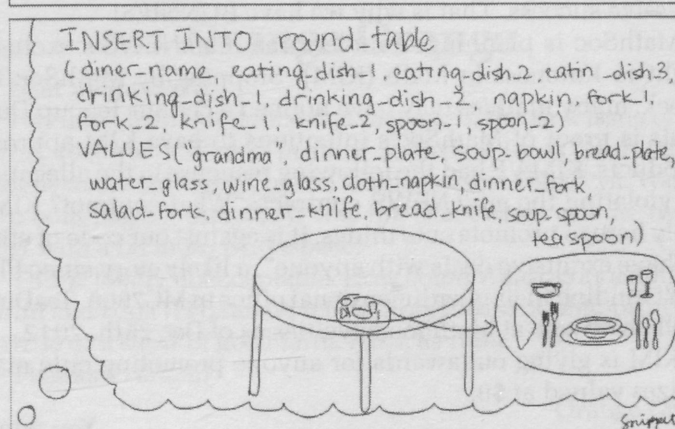 INSERT INTO round table
(diner_name, eating_dish_1, eating_dish_2, eatin_dish_3,
drinking_dish_1, drinking_dish_2, napkin, fork_1,
fork_2, knife_1, knife_2, spoon_1, spoon_2)
VALUES("grandma", dinner_plate, soup_bowl, bread_plate,
water_glass, wine_glass, cloth_napkin, dinner_fork,
salad_fork, dinner_knife, bread_knife, soup_spoon,
tea spoon)